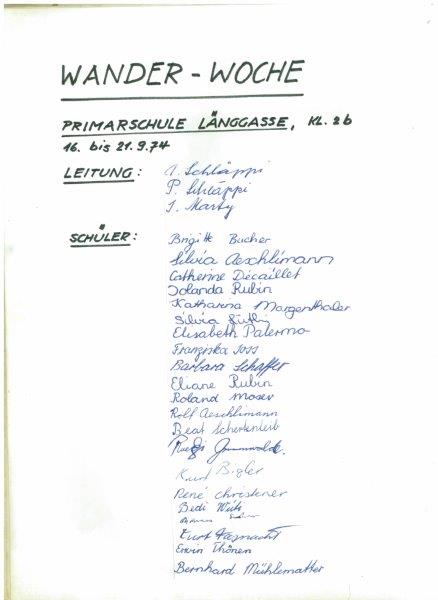 WANDER - WOCHE
PRIMARSCHULE LÄNGGASSE, KL. 2b
16. bis 21.9.74
LEITUNG: A. Schläppi
P. Schläppi
J. Marty
SCHÜLER: Brigitt Bucher
Silvia Aeschlimann
Catherine Décaillet
Jolanda Rubin
Katharina Morgenthaler
Silvia
Elisabeth Palermo
Franziska Joss
Barbara Schaffer
Eliane Rubin
Roland Moser
Rolf Aeschlimann
Beat Schertenleib
Kurt Bigler
René Christener
Bedi
Kurt
Erwin Thönen
Bernhard Mühlematter